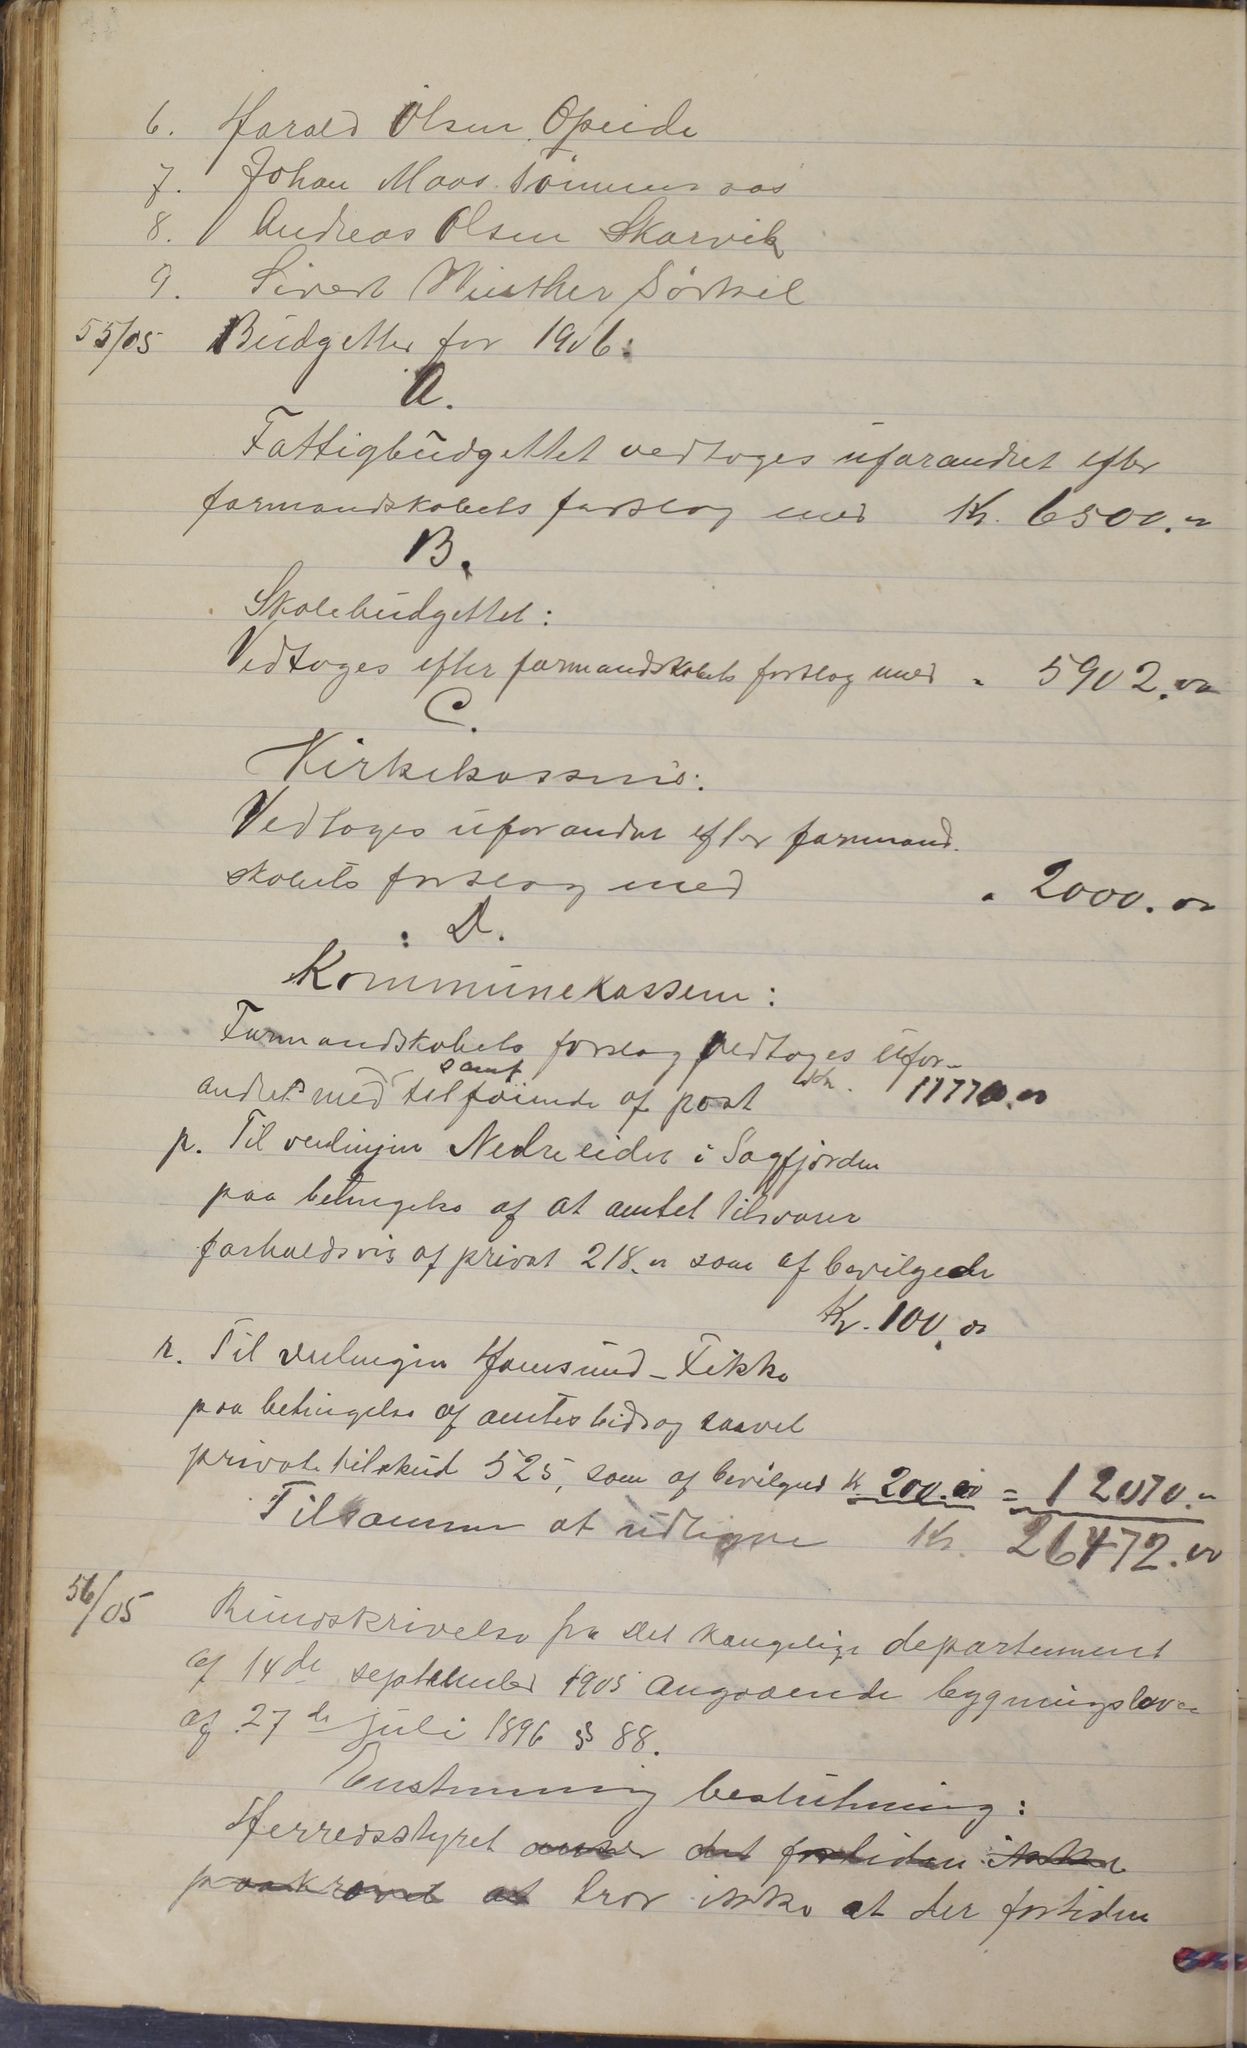 6. Harald Olsen Opeide
7. Johan Moos Tømmeraas
8. Andreas Olsen Skarvik
9. Sivert Winther Sørkil
55/05 Budgetter for 1906:
A.
Fattigbudgettet vedtoges uforandret efter
formandskabets forslag med Kr. 6500.00
B.
Skolebudgettet:
Vedtoges efter formandskabets forslag med " 5902.00
C.
Kirkekassens:
Vedtoges uforandret efter formand-
skabets forslag med " 2000.00
: D.
Kommunekassen:
Formandskabets forslag vedtoges ufor-
andret med samt tilføiende af post Kr. 11770.00
p. Til veilinjen Nedre eidet i Sagfjorden
paa betingelse af at amtet tilsvarer
forholdsvis af privat 218.00 som af bevilgede
Kr. 100.00
r. Til veilinjen Hamsund - Fikke
paa betingelse af amtsbidrag saavel
private tilskud 525, som af bevilgede Kr 200.00 = 12070.00
Tilsammen at udligne Kr. 26472.00
56/05 Rundskrivelse fra det kongelige departement
af 14de september 1905 angaaende bygningsloven
af 27de juli 1896 § 88.
Enstemmig beslutning:
Herredsstyret anser det fortiden ikke
paakrævet at tror ikke at der fortiden